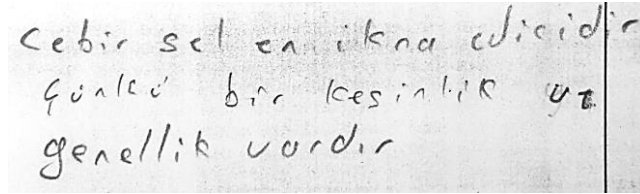 Cebir sel en ikna edicidir
Çünkü bir kesinlik ve
genellik vardır